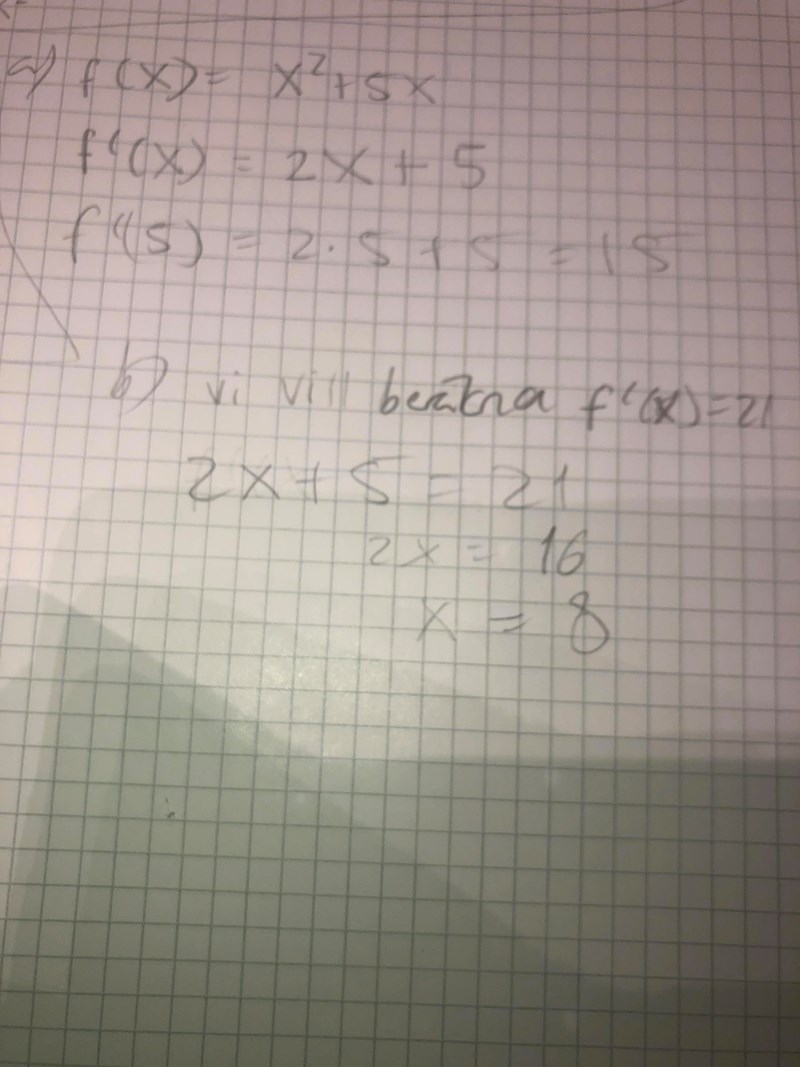 a) f(x) = x²+5x
f'(x) = 2x + 5
f'(5) = 2·5+5 = 15
b) vi vill beräkna f'(x)=21
2x+5 = 21
2x = 16
x = 8